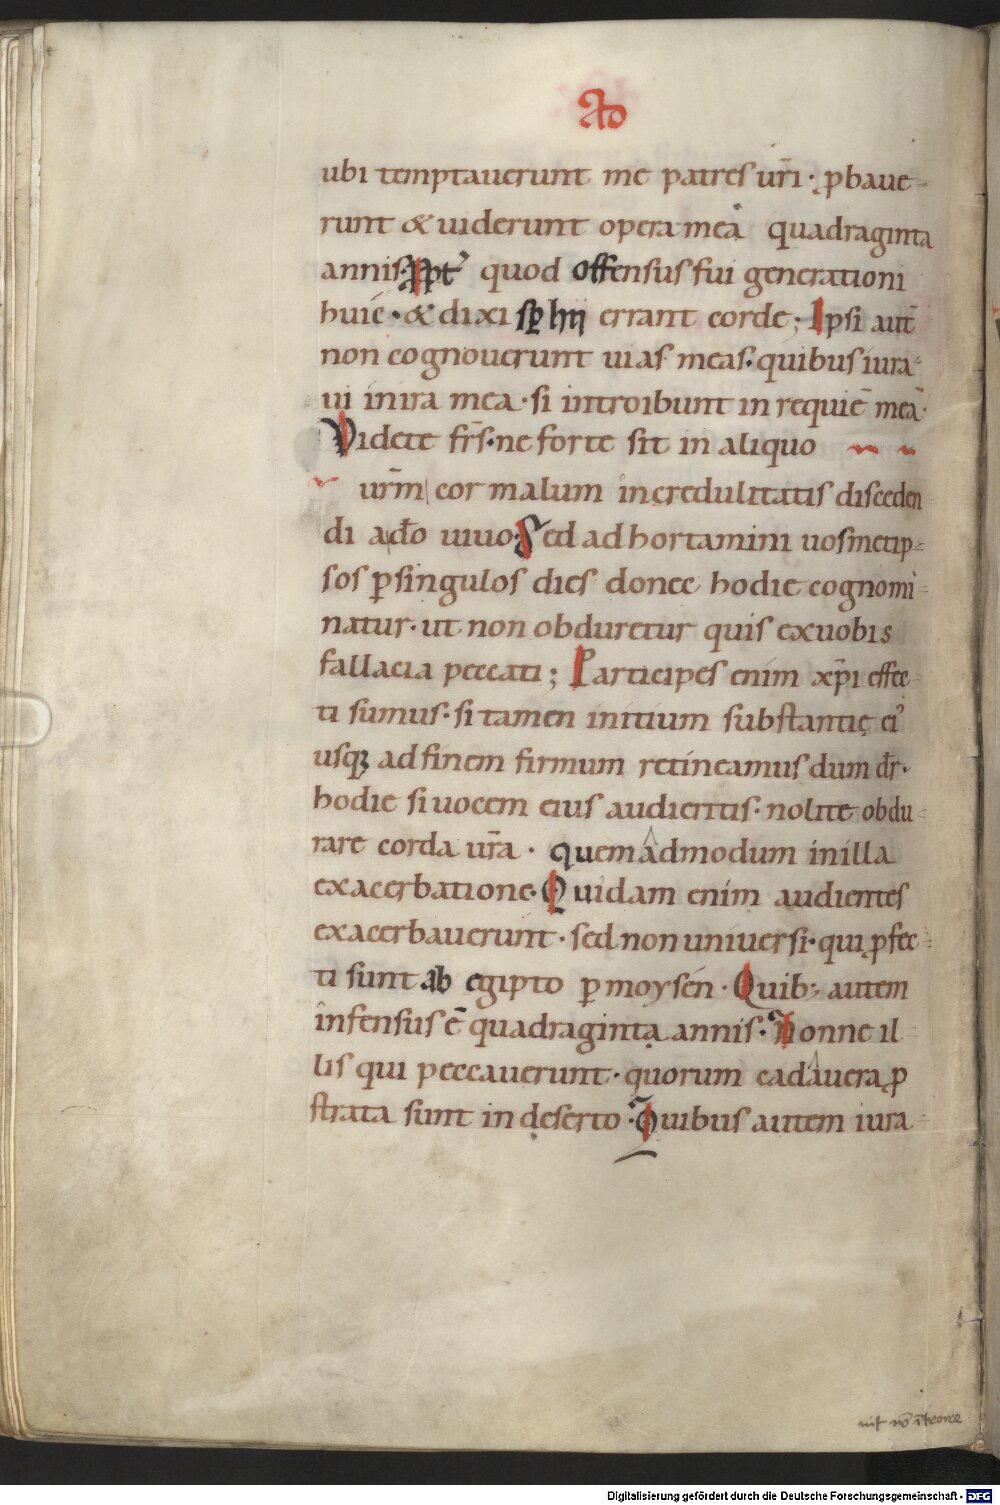 AD
ubi temptauerunt me patres ur̄i · ꝓbaue-
runt & uiderunt opera mea quadraginta
annis. Ppt̄ quod offensus fui generationi
huic · & dixi sp̄ hii errant corde ; Ipsi aut̄
non cognouerunt uias meas. quibus iura-
ui in ira mea · si introibunt in requiē meā.
Videte fr̄s. ne forte sit in aliquo
ur̄m cor malum incredulitatis disceden
di a do̅ uiuo. Sed adhortamini uosmetip-
sos ꝑ singulos dies donec hodie cognomi-
natur. ut non obduretur quis ex uobis
fallacia peccati ; Participes enim xp̄i effec-
ti sumus. si tamen initium substantię ei᾿
usq; ad finem firmum retineamus dum dr̄.
hodie si uocem eius audieritis. nolite obdu-
rare corda ur̄a · quemadmodum in illa
exacerbatione. Quidam enim audientes
exacerbauerunt. sed non uniuersi. qui ꝓfec-
ti sunt ab egipto ꝑ moysén. Quib; autem
infensus ē quadraginta annis. Nonne il-
lis qui peccauerunt. quorum cadauera ꝓ
strata sunt in deserto. Quibus autem iura-
uit nō īt͞roire
Digitalisierung gefördert durch die Deutsche Forschungsgemeinschaft - DFG